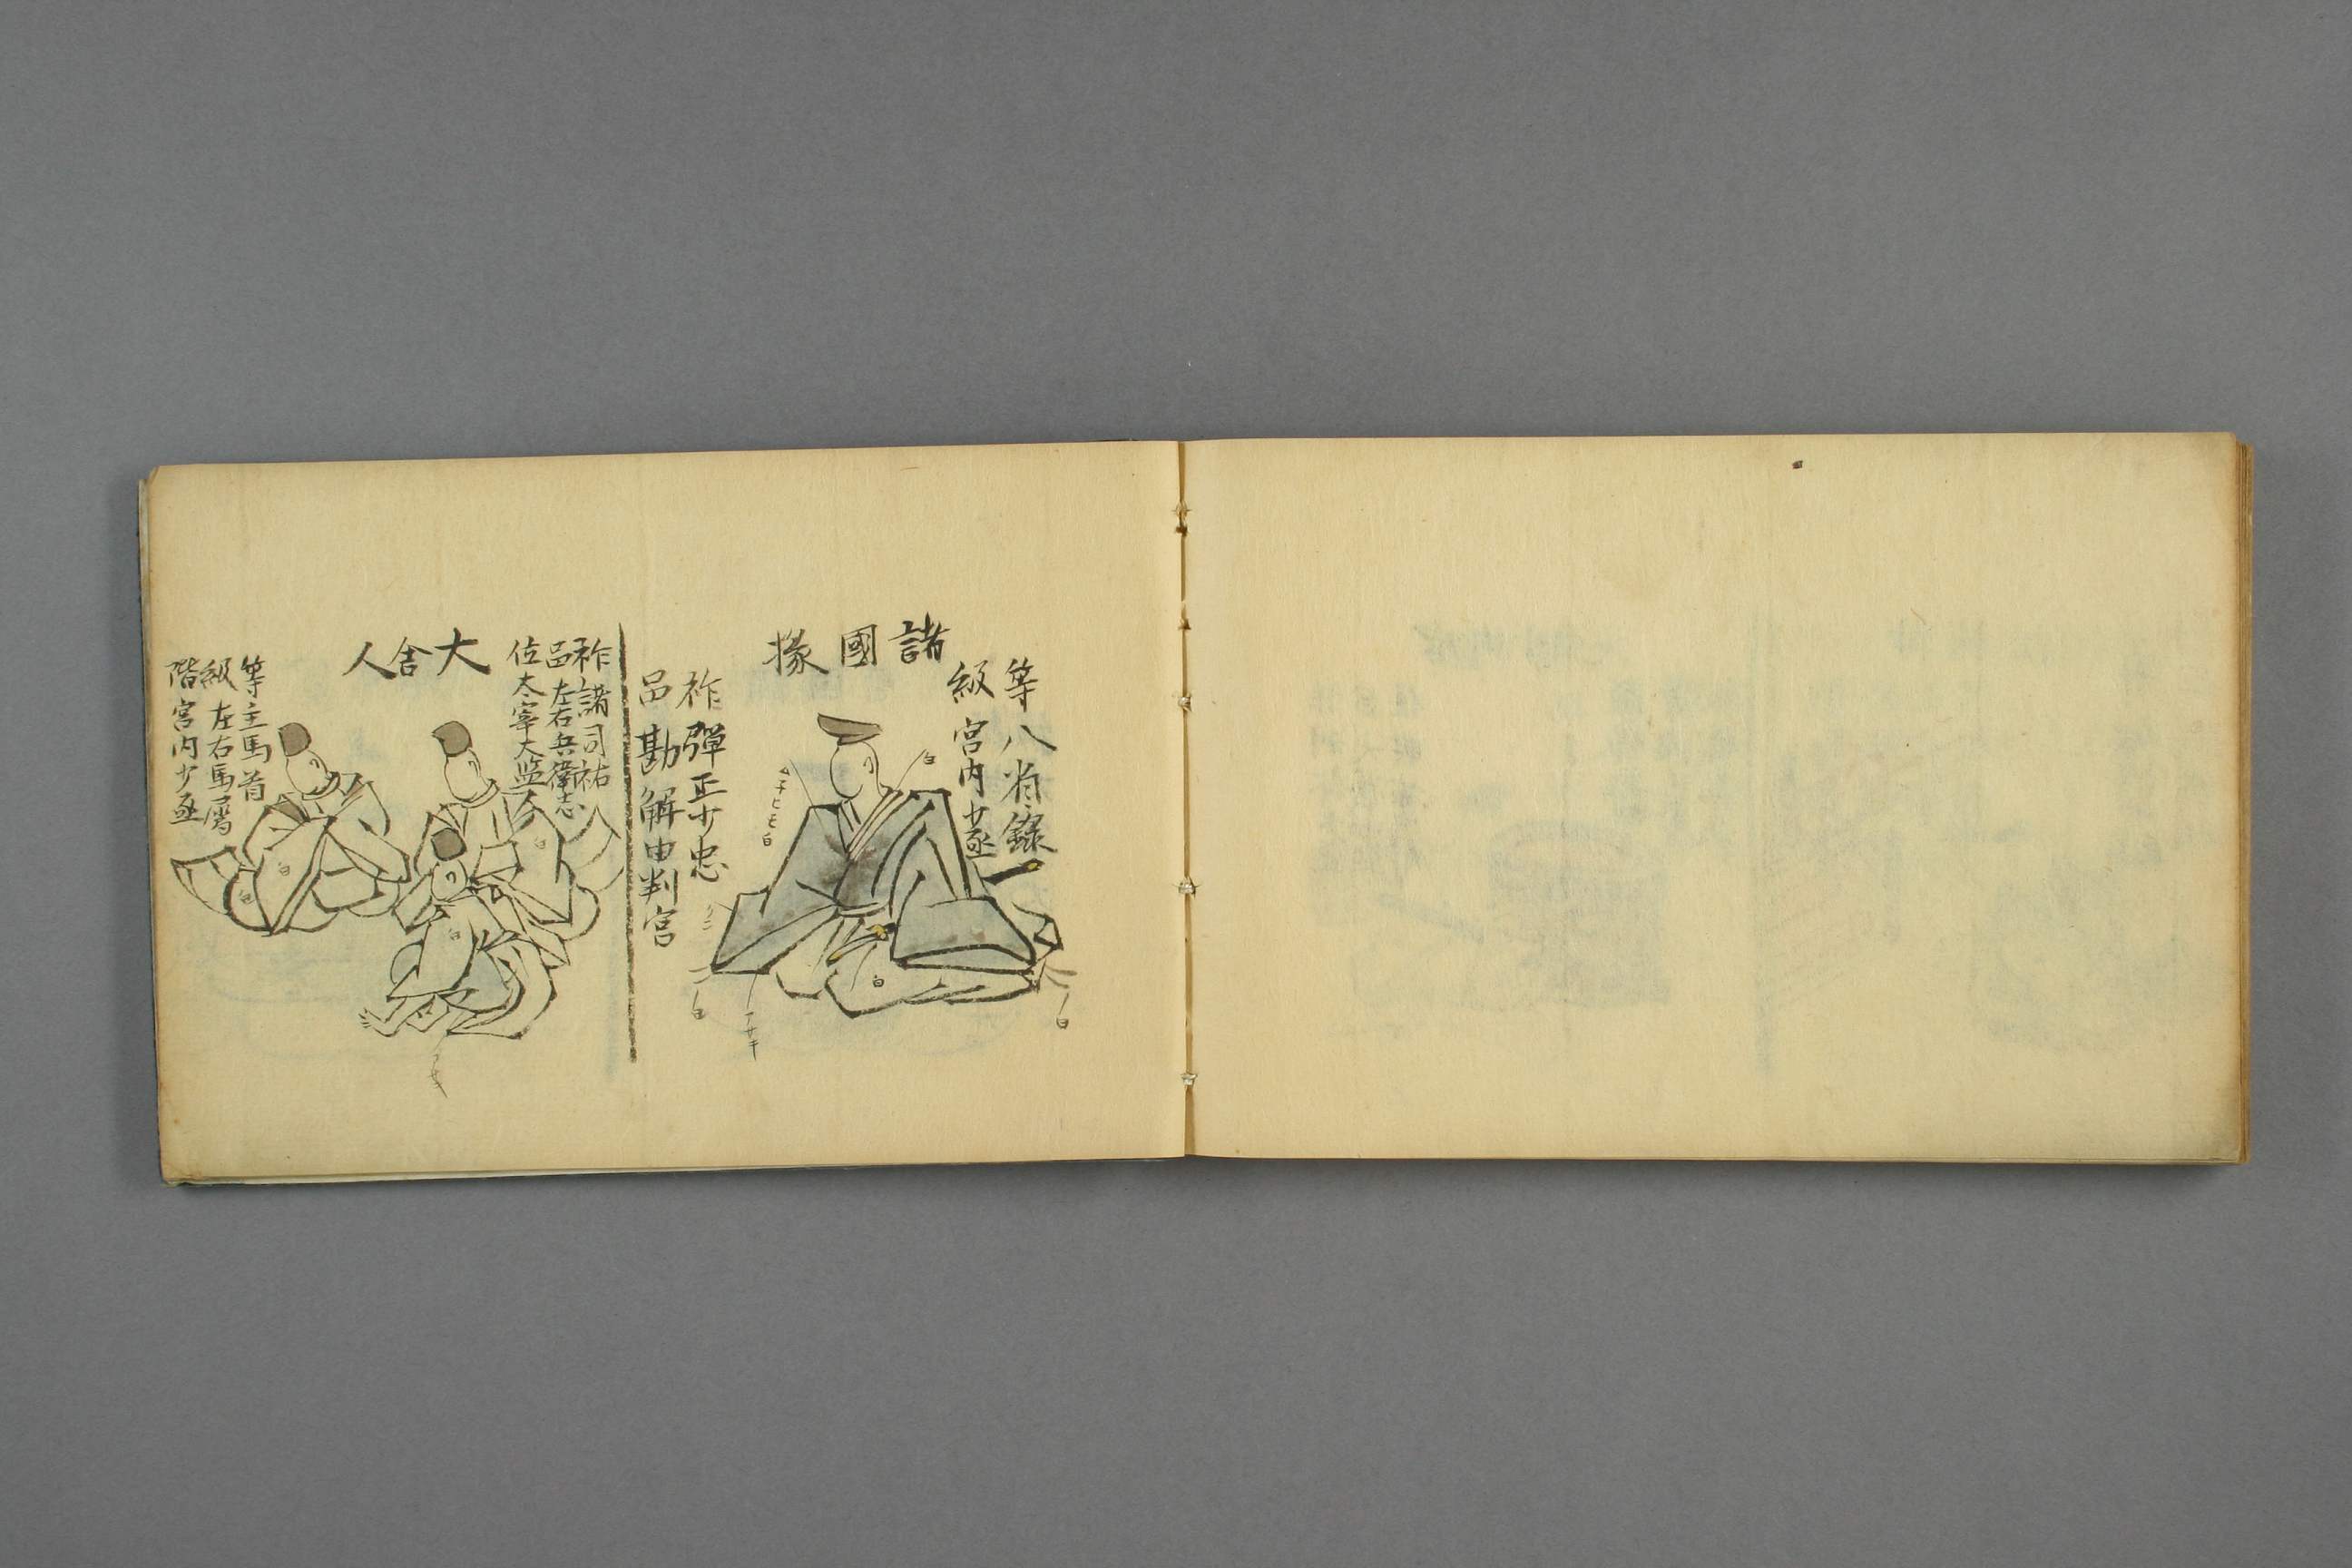 等八省録
級宮内少丞
諸國掾
祚彈正少忠
品勘解由判官
祚諸司祐
品左右兵衛志
位太宰大監
大舎人
等主馬首
級左右馬属
階宮内少丞
白
白
白
白
アサキ
白
白
白
白